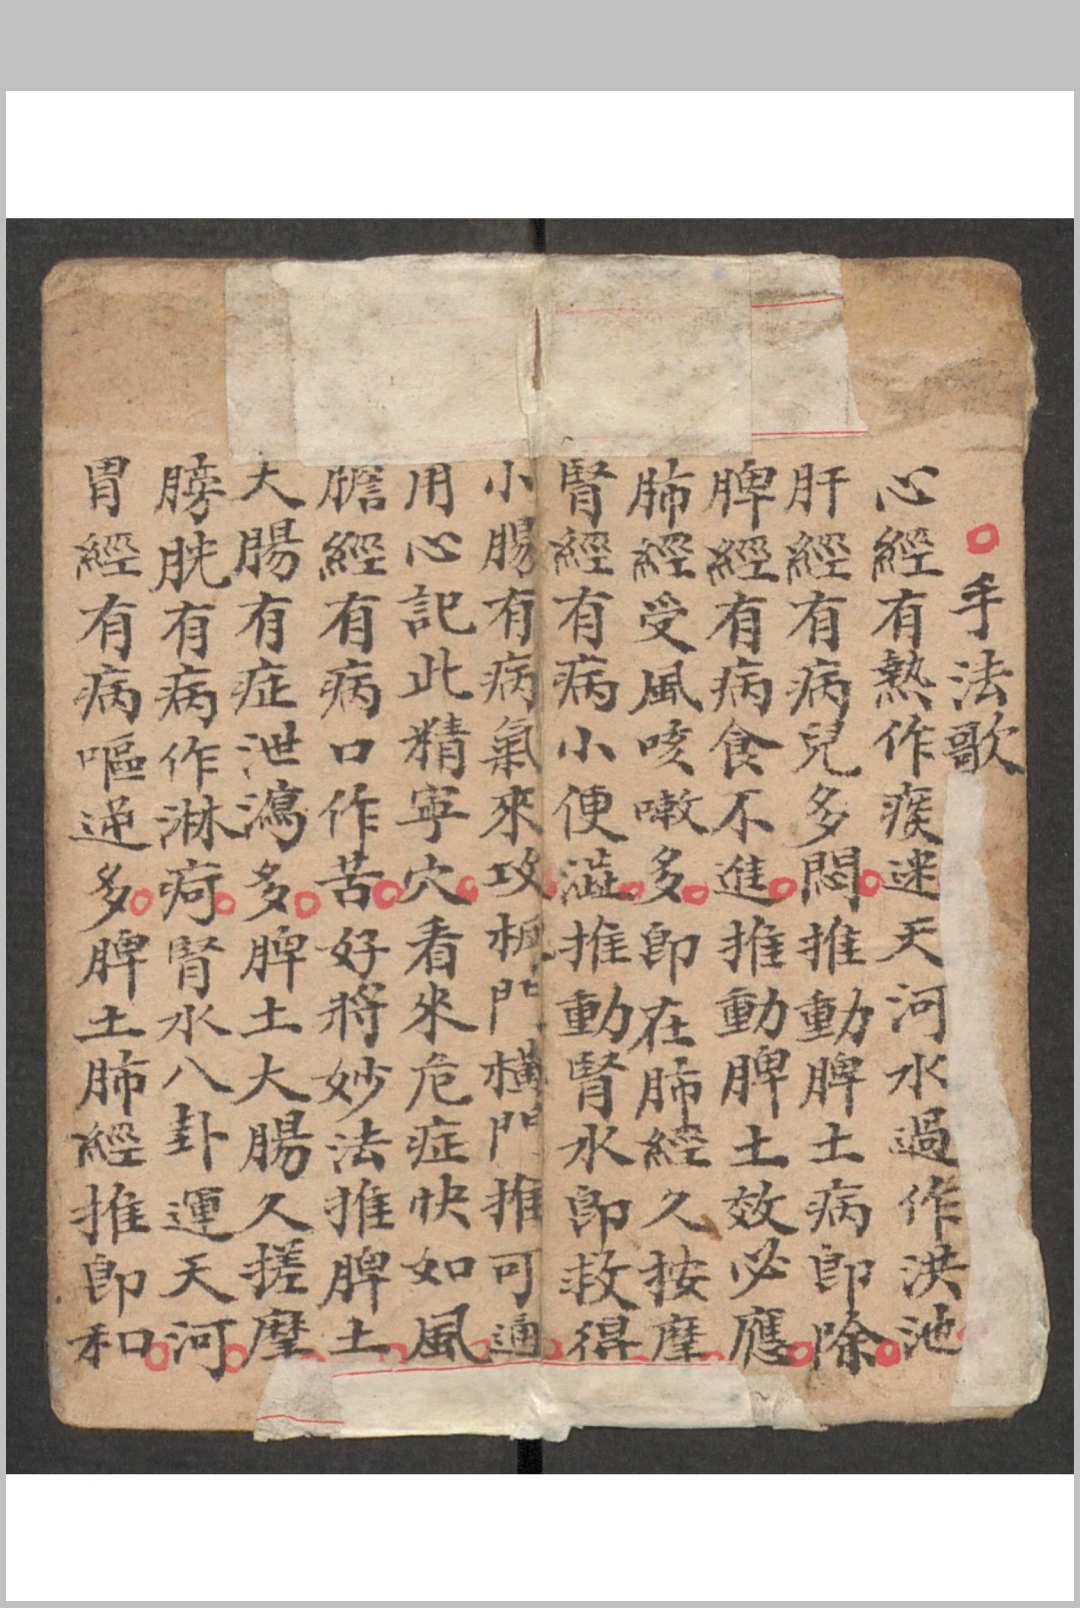 手法歌
心經有熱作痰迷天河水過作洪池
肝經有病兒多悶推動脾土病即除
脾經有病食不進推動脾土效必應
肺經受風咳嗽多即在肺經久按摩
腎經有病小便澁推動腎水即救得
小腸有病氣來攻板門橫門推可通
用心記此精寧穴看來危症快如風
膽經有病口作苦好將妙法推脾土
大腸有症泄瀉多脾土大腸久搓摩
膀胱有病作淋疴腎水八卦運天河
胃經有病嘔逆多脾土肺經推即和